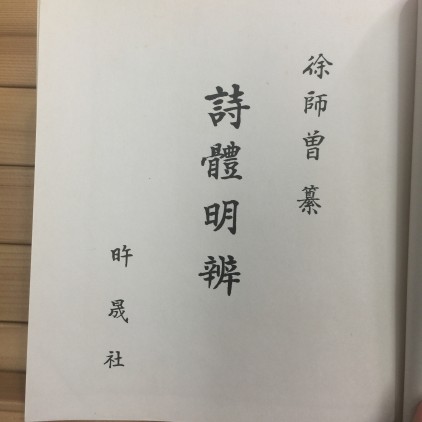 徐師曽纂
詩體明辨
旿晟社